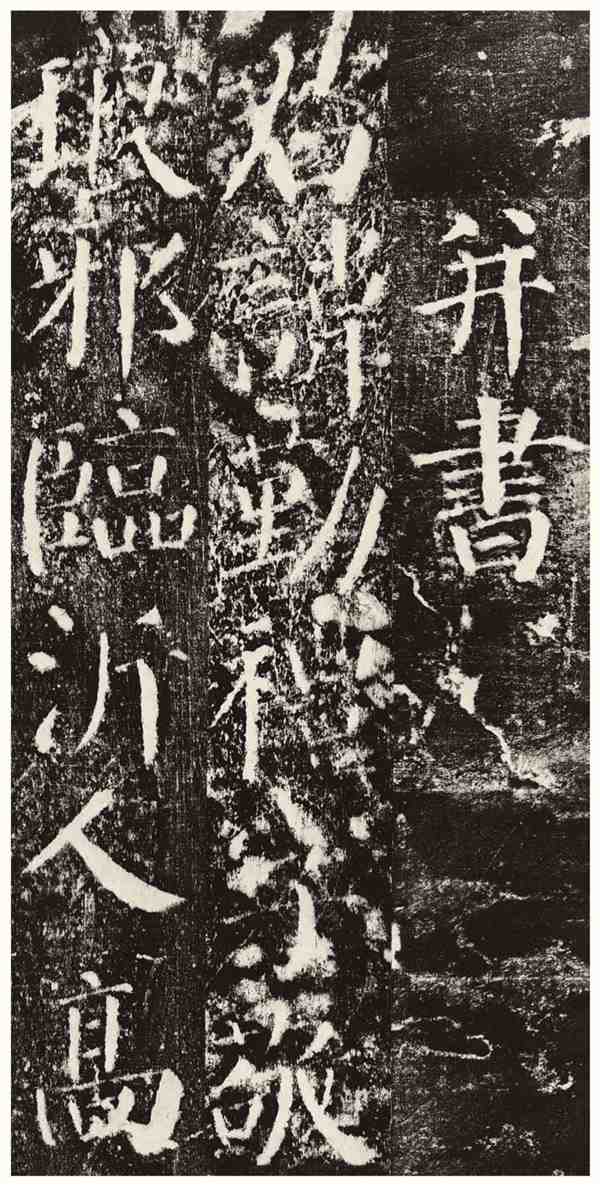 并書
君諱勤禮字敬
琅邪臨沂人高